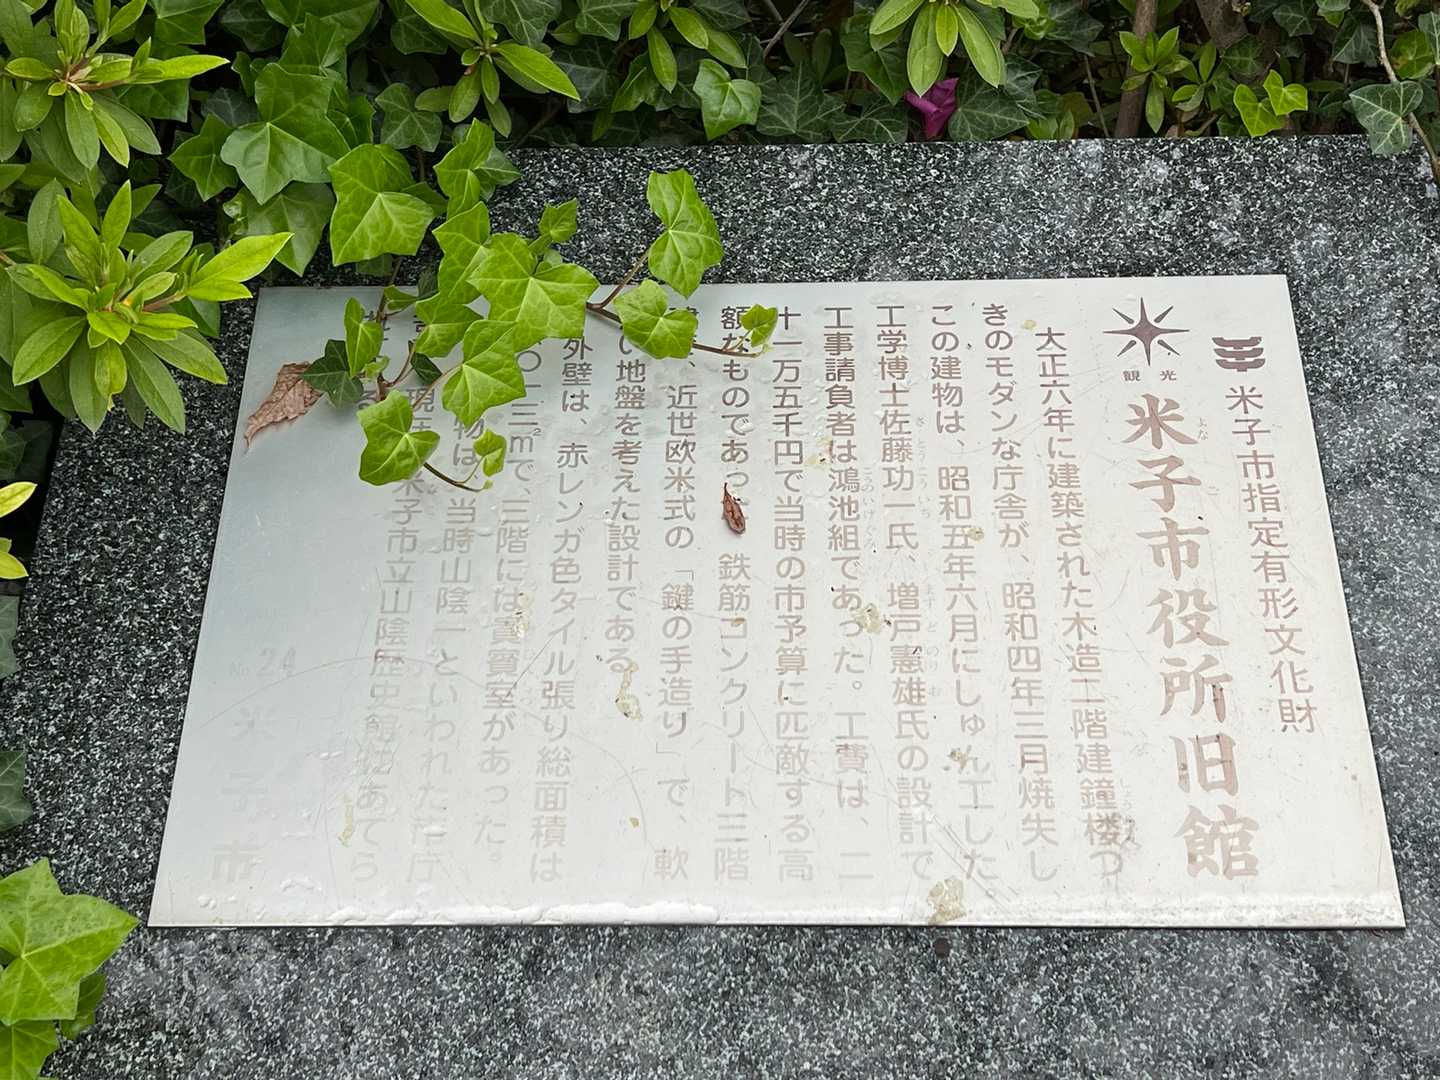 米子市指定有形文化財
観光
米子市役所旧館
よな ご
大正六年に建築された木造二階建鐘楼つ
しょうろう
きのモダンな庁舎が、昭和四年三月焼失し
この建物は、昭和五年六月にしゅん工した。
工学博士佐藤功一氏、増戸憲雄氏の設計で
さとうこういち ますどのりお
工事請負者は鴻池組であった。工費は、二
こうのいけぐみ
十一万五千円で当時の市予算に匹敵する高
額なものであっ 鉄筋コンクリート三階
、近世欧米式の「鍵の手造り」で、軟
い地盤を考えた設計である
外壁は、赤レンガ色タイル張り総面積は
〇一三㎡で、三階には貴賓室があった。
物は、当時山陰一といわれた市庁
現在 米子市立山陰歴史館にあてら
る
No.24
米子市